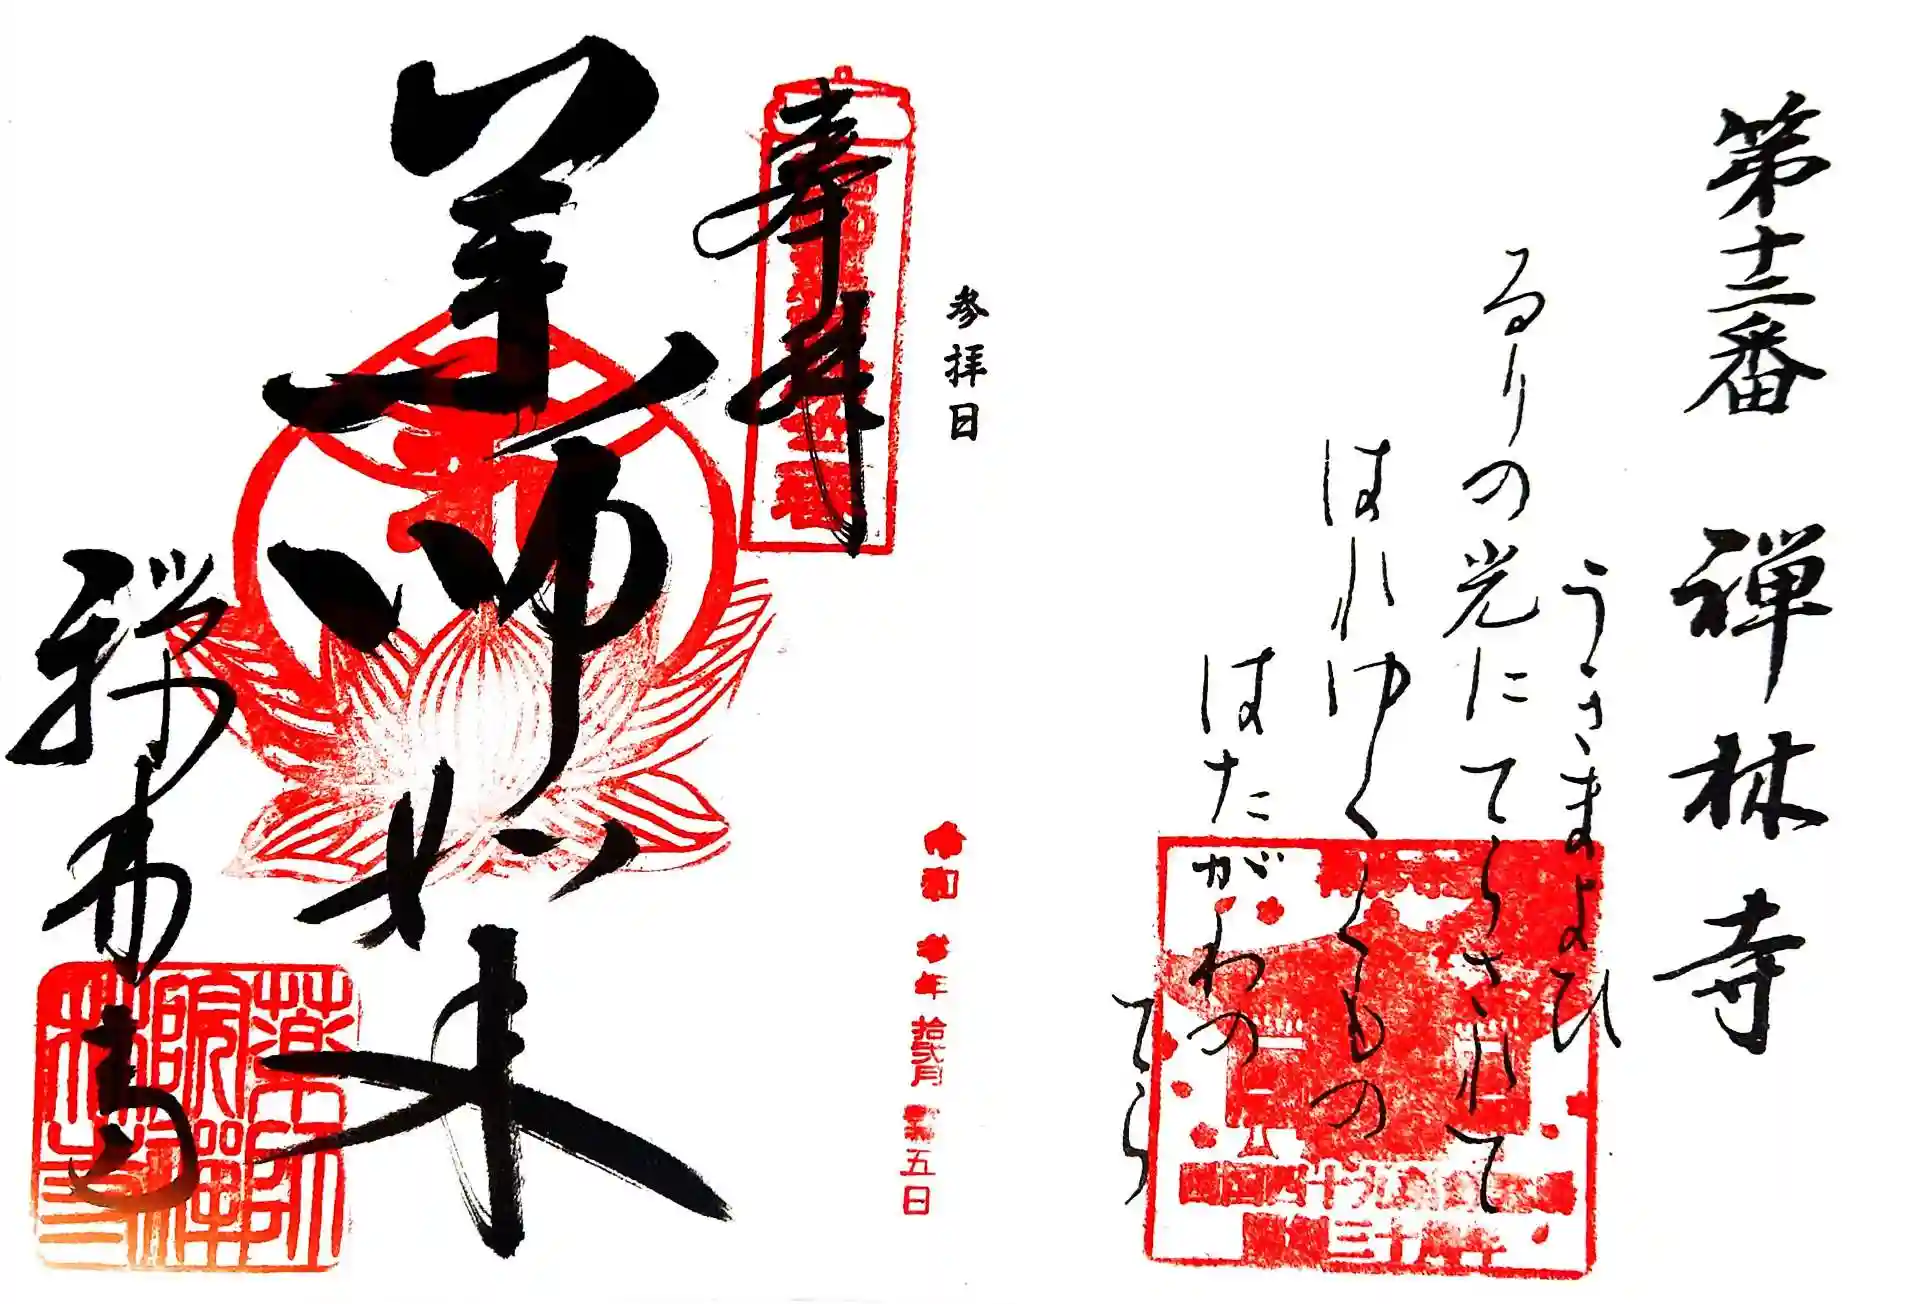 第十二番 禅林寺
うきまよひ
るりの光にてらされて
はれゆくくもの
はたがわの
てら
参拝日
奉拝
薬師如来
禅林寺
令和 年 拾弐月 五日
薬師院禅林寺
四国四十九薬師霊場
三十周年